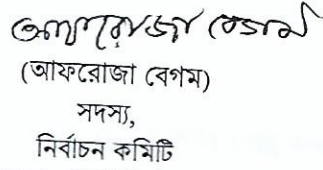 আফরোজা বেগম
(আফরোজা বেগম)
সদস্য,
নির্বাচন কমিটি